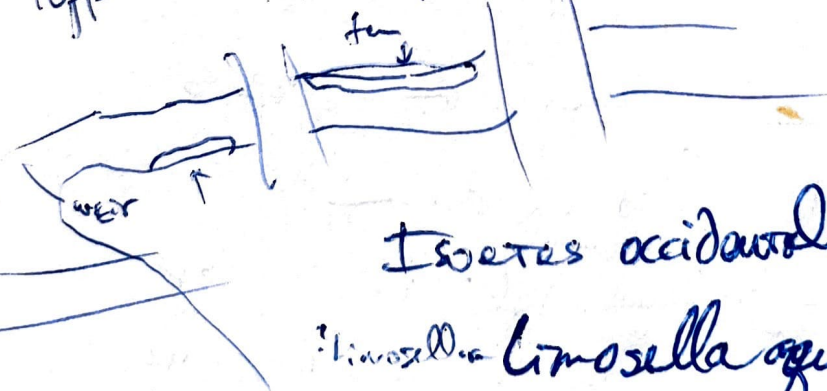 weir
Isoetes occidental
?Limosella Limosella aqu